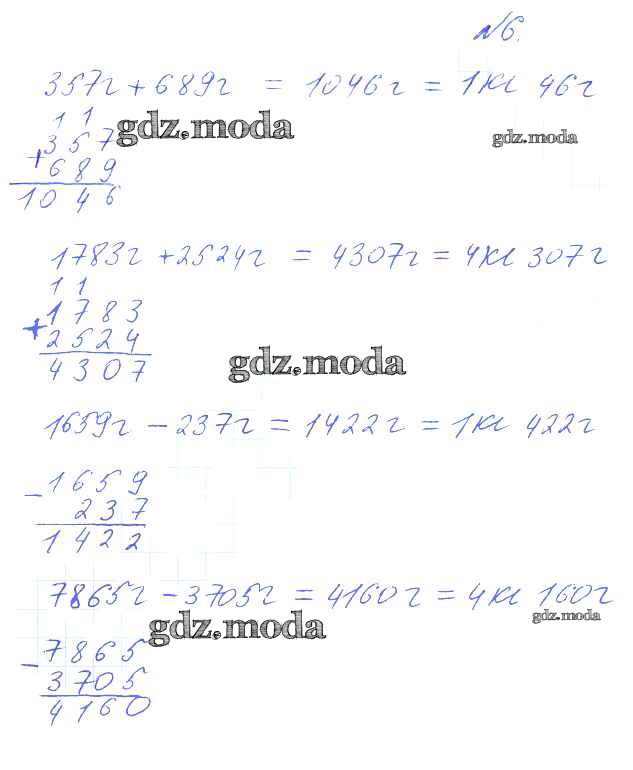 №6.
357г + 689г = 1046г = 1кг 46г
1 1
gdz.moda
357
gdz.moda
+ 689
1046
1783г + 2524г = 4307г = 4кг 307г
1 1
1783
+ 2524
gdz.moda
4307
1659г - 237г = 1422г = 1кг 422г
- 1659
237
1422
7865г - 3705г = 4160г = 4кг 160г
gdz.moda
gdz.moda
- 7865
3705
4160